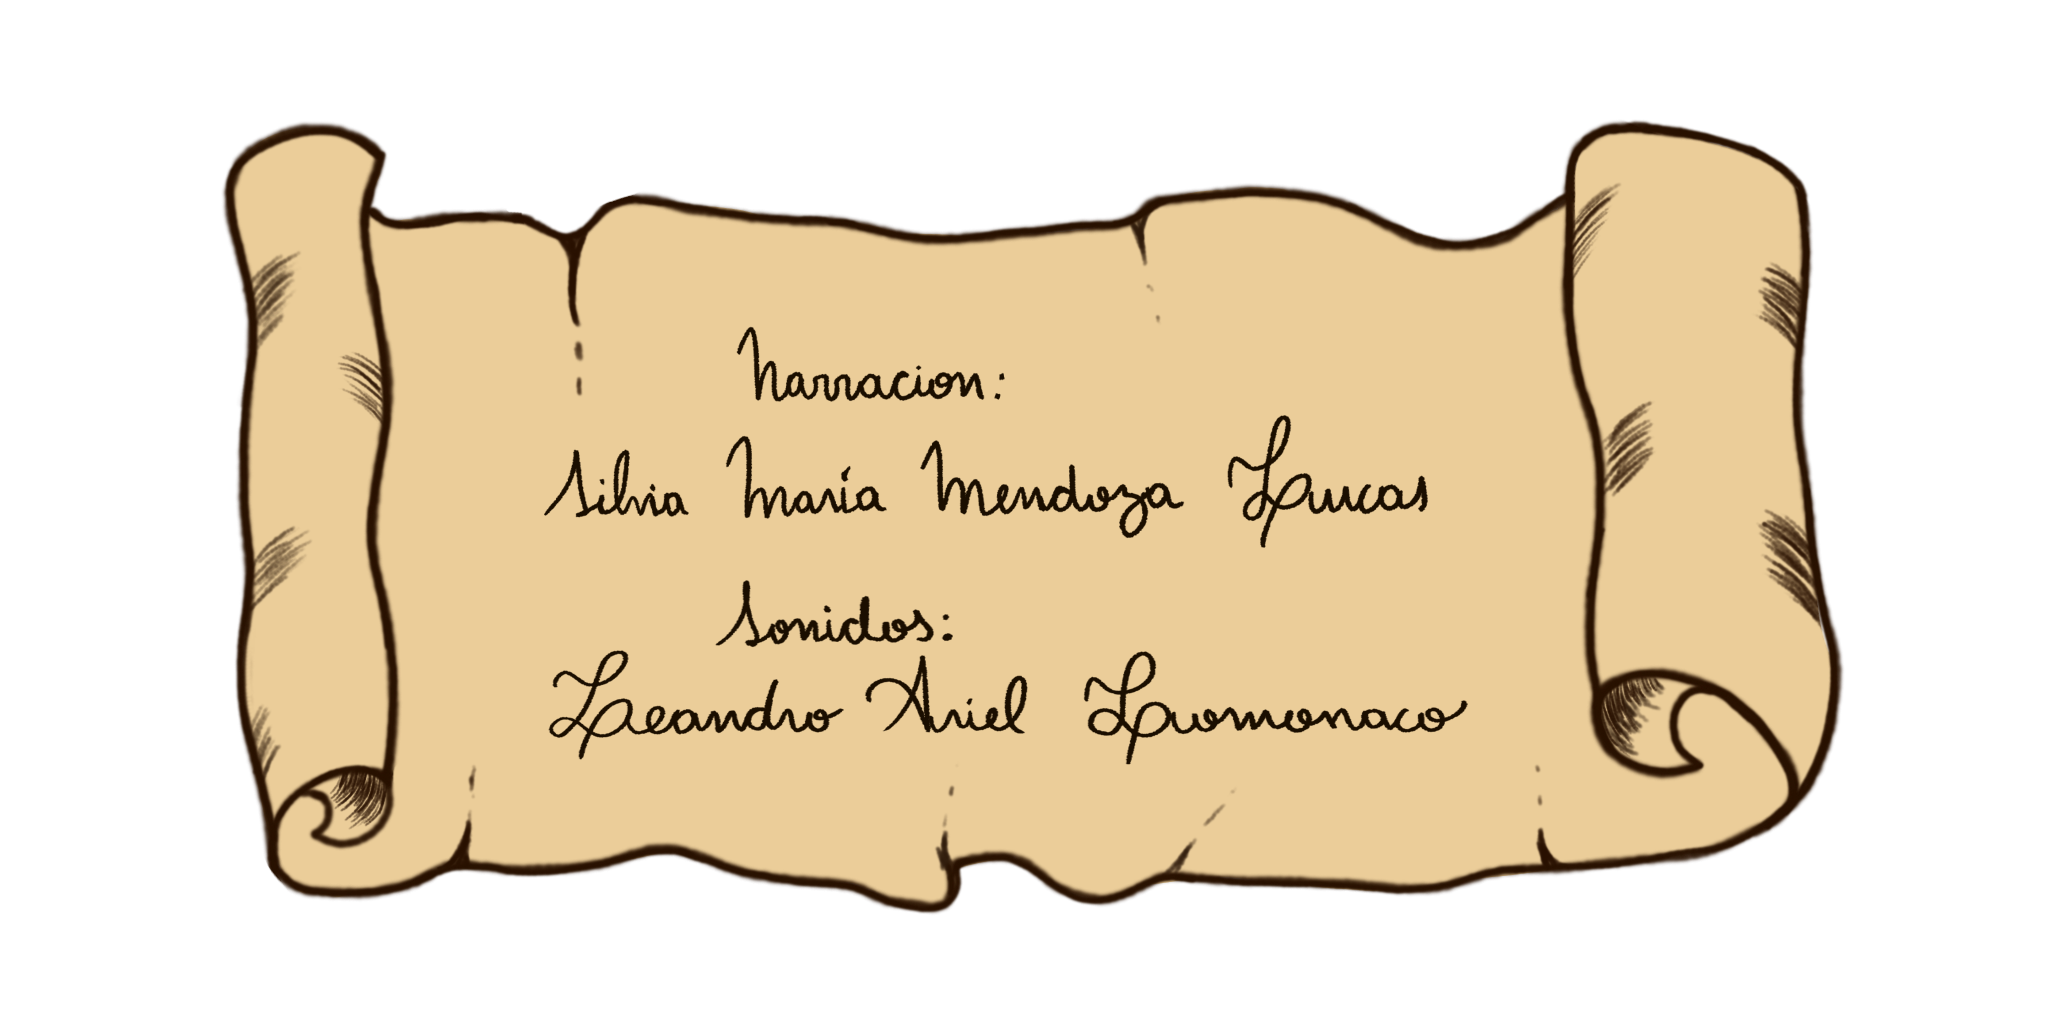 Narracion:
Silvia María Mendoza Lucas
Sonidos:
Leandro Ariel Luomonaco